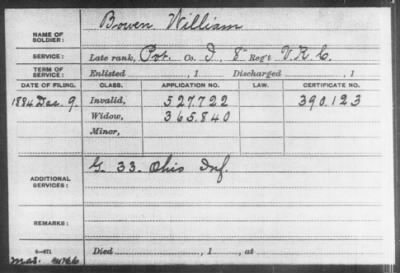 NAME OF SOLDIER: Bowen William
SERVICE: Late rank, Pvt. Co. I, 8" Reg't V.R.C.
TERM OF SERVICE: Enlisted , 1 Discharged , 1
DATE OF FILING. CLASS. APPLICATION NO. LAW. CERTIFICATE NO.
1884 Dec. 9. Invalid, 527.722 390.123
Widow, 365.840
Minor,
ADDITIONAL SERVICES: G 33. Ohio Inf.
REMARKS:
Died , 1 , at